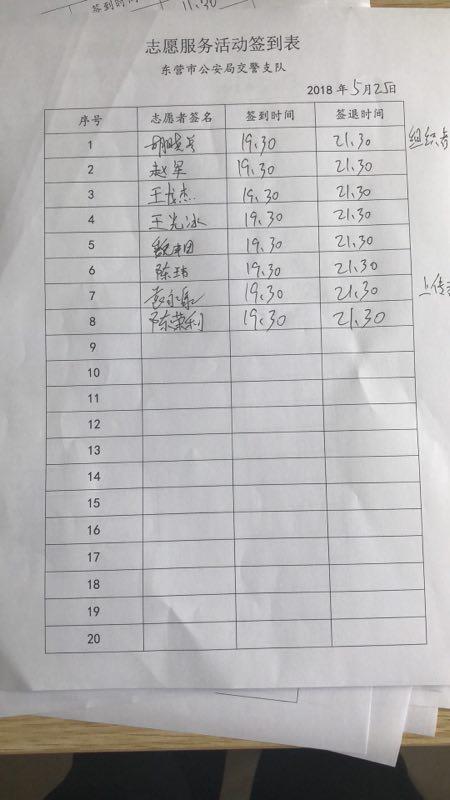 签到时间 11.30
志愿服务活动签到表
东营市公安局交警支队
2018 年 5月25日
序号 志愿者签名 签到时间 签退时间
1 19.30 21.30 组织者
2 赵军 19.30 21.30
3 王龙杰 19.30 21.30
4 王光冰 19.30 21.30
5 19.30 21.30
6 陈玮 19.30 21.30
7 19.30 21.30 上传
8 陈荣利 19.30 21.30
9
10
11
12
13
14
15
16
17
18
19
20